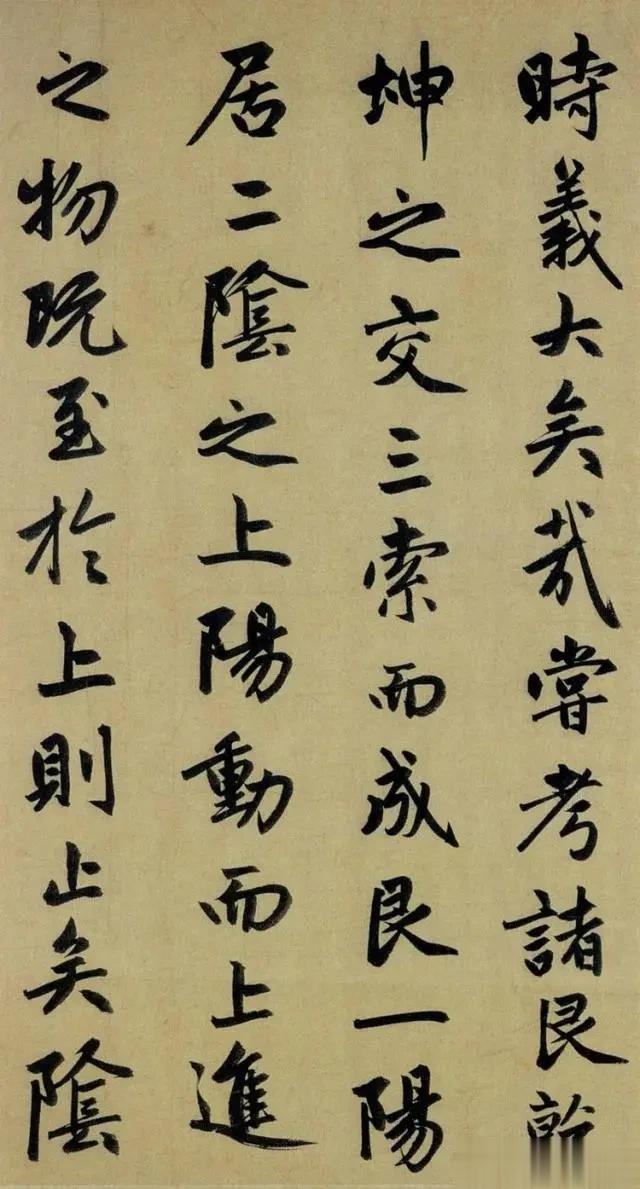 時義大矣哉嘗考諸艮乾
坤之交三索而成艮一陽
居二陰之上陽動而上進
之物既至於上則止矣陰